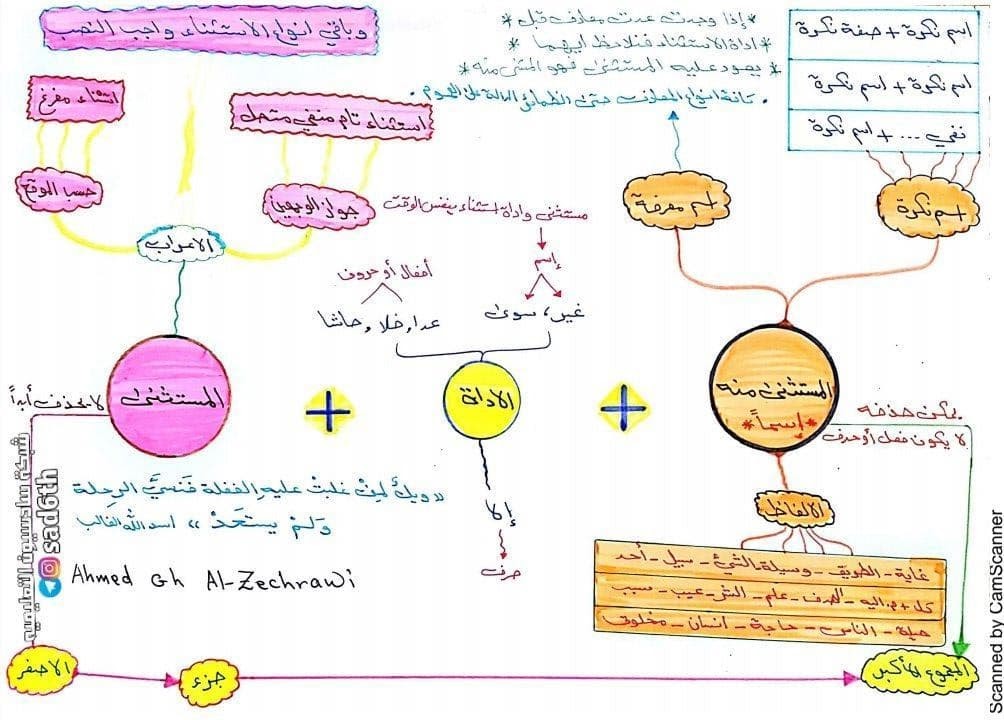 وباقي انواع الاستثناء واجب النصب
استثناء مفرغ
استثناء تام منفي متصل
حسب الموقع
جواز الوجهين
الاعراب
المستثنى
لا يحذف أبداً
*إذا وجدت عدت معارف قبل*
*اداة الاستثناء فنلاحظ ايهما*
*يعود عليه المستثنى فهو المستثنى منه*
اسم نكرة + صفة نكرة
اسم نكرة + اسم نكرة
نفي ... + اسم نكرة
اسم معرفة
اسم نكرة
مستثنى واداة استثناء بنفس الوقت
إسم
غير، سوى
أفعال أو حروف
عدا، خلا، حاشا
الاداة
إلا
حرف
المستثنى منه
*إسماً*
يمكن حذفه
لا يكون فعل أو حرف
الالفاظ
غاية - الطريق - وسيلة - الشيء - سبيل - أحد
كل + م.اليه - - علم - - عيب - سبب
حيلة - الناس - حاجة - انسان - مخلوق
«ويلٌ لمن غلبت عليه الغفلة فنسيَ الرحلة
ولم يستعد» اسد الله الغالب
Ahmed Gh Al-Zechrawi
الاصغر
جزء
المجموع الأكبر
شبكة سادسيون التعليمية
@sad6th
Scanned by CamScanner